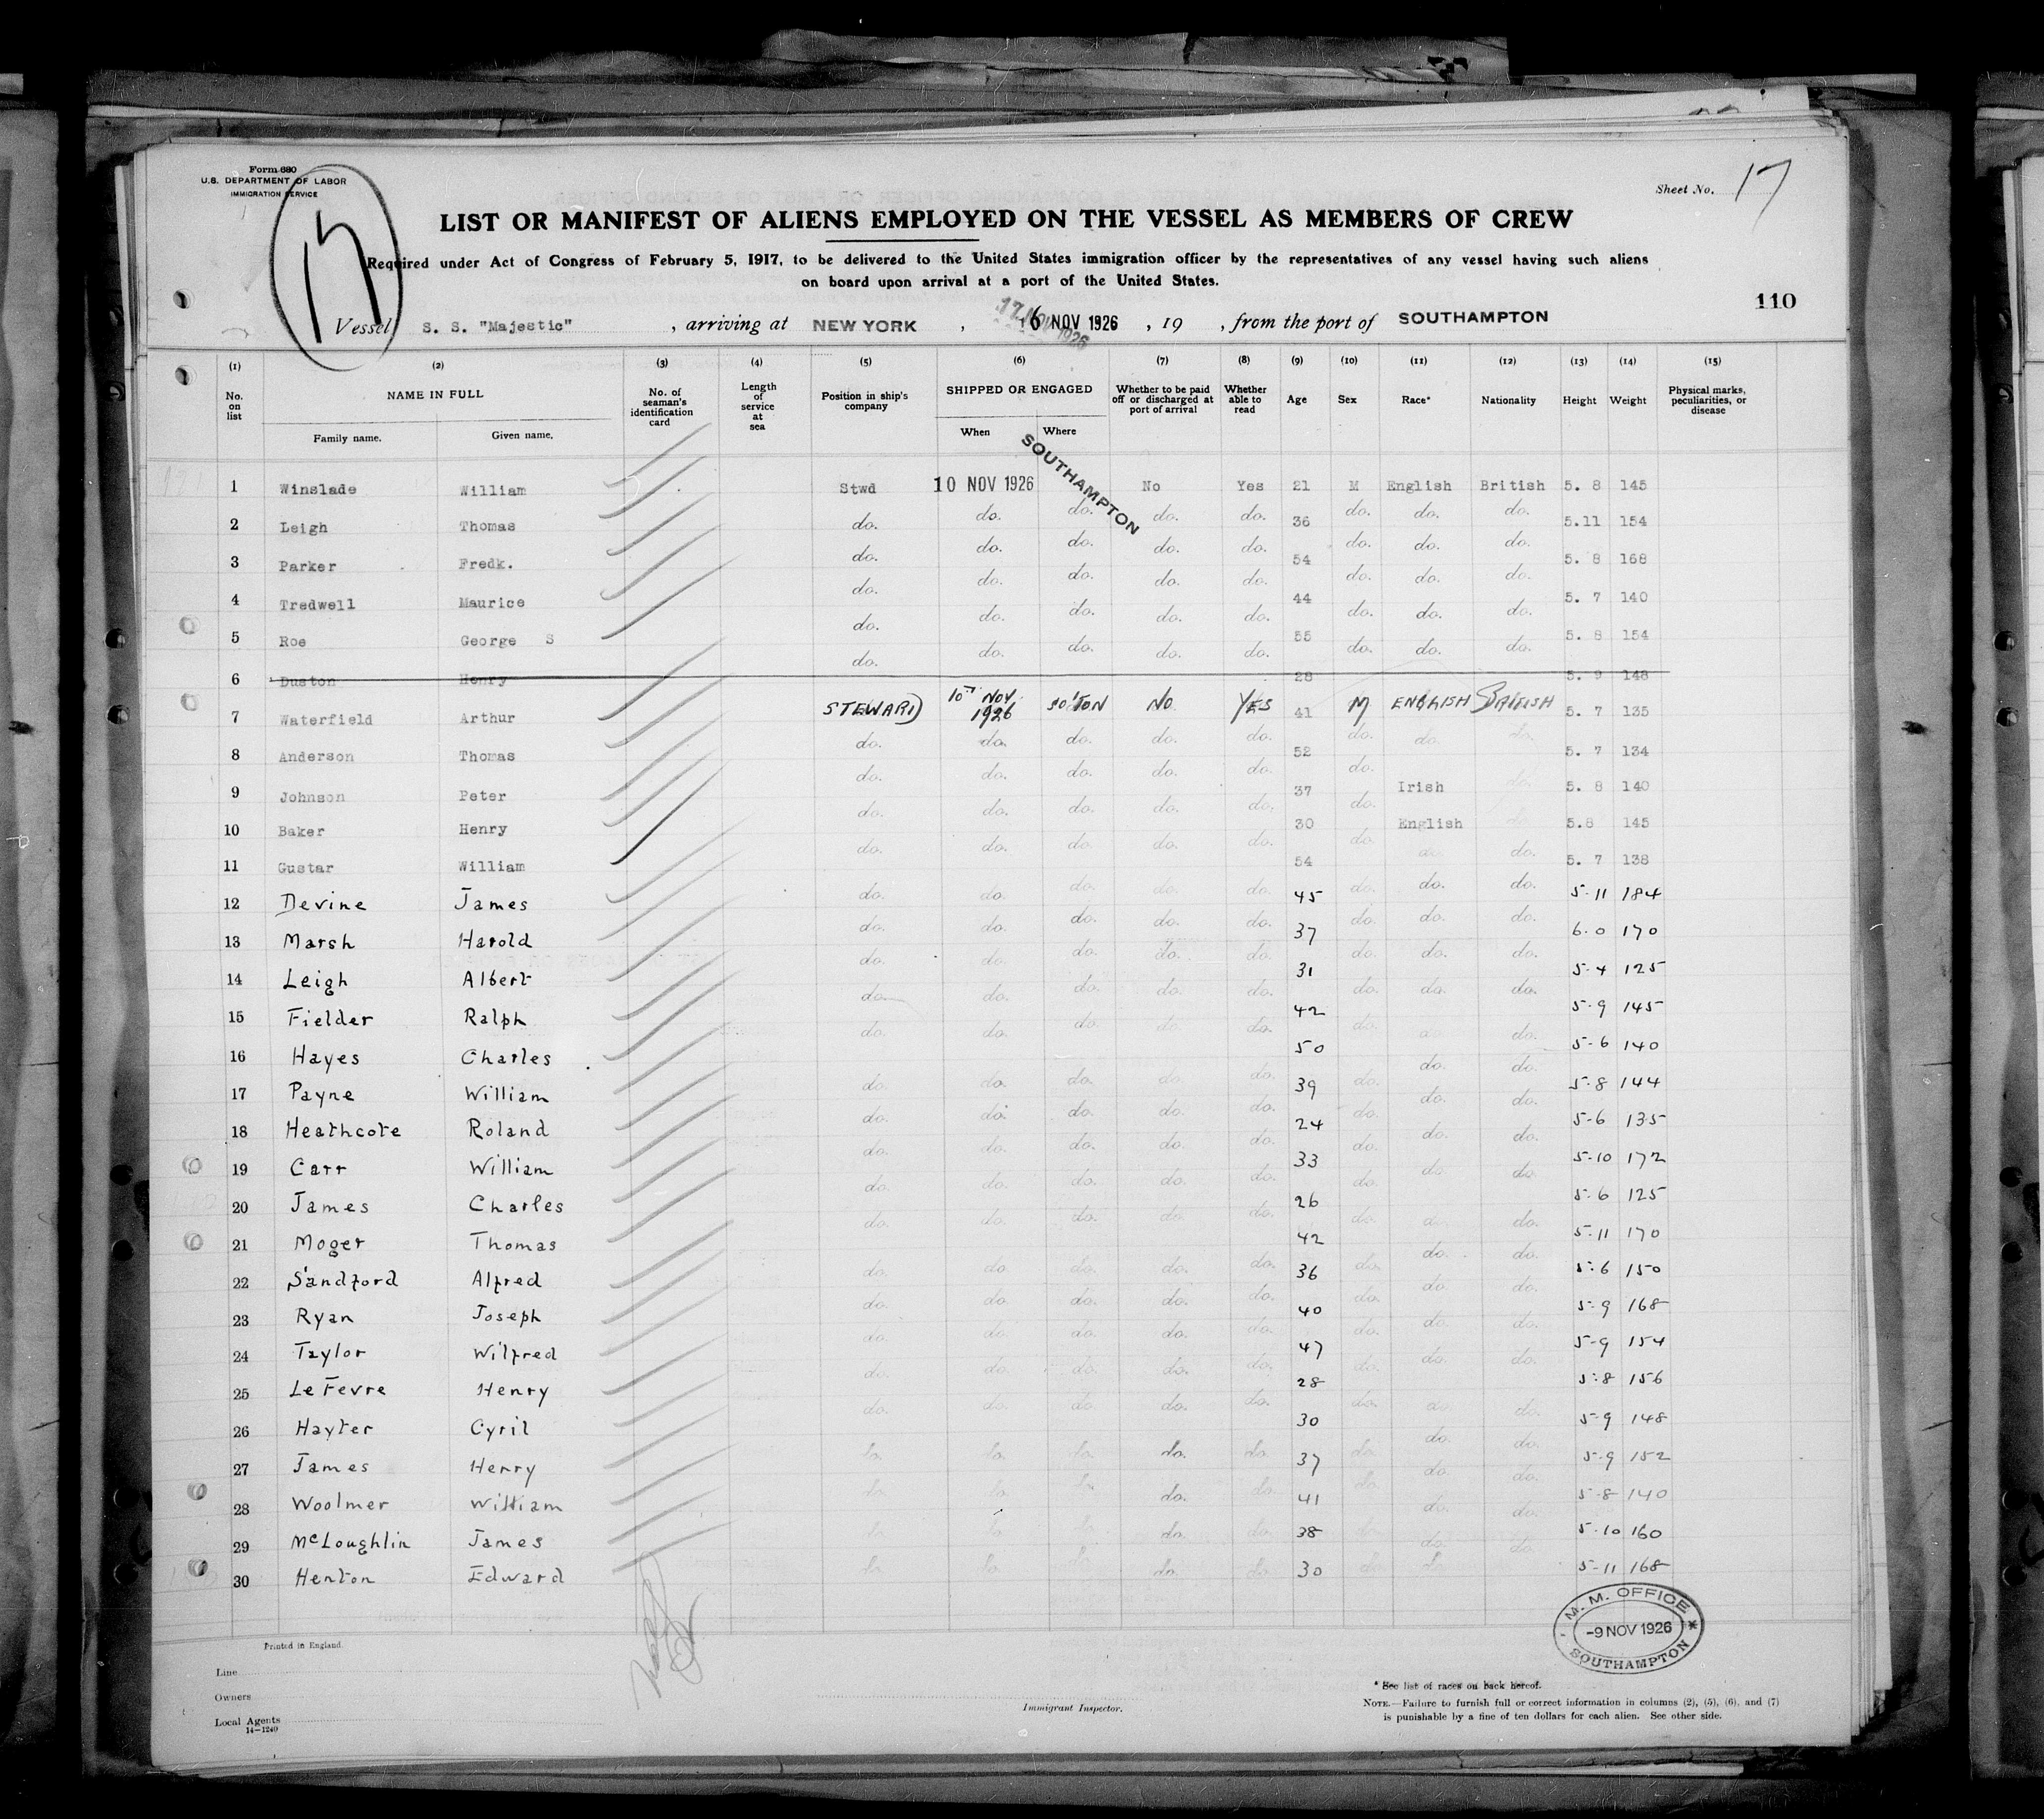 Form 680
U.S. DEPARTMENT OF LABOR
IMMIGRATION SERVICE
17
Sheet No. 17
LIST OR MANIFEST OF ALIENS EMPLOYED ON THE VESSEL AS MEMBERS OF CREW
Required under Act of Congress of February 5, 1917, to be delivered to the United States immigration officer by the representatives of any vessel having such aliens
on board upon arrival at a port of the United States.
110
Vessel S. S. "Majestic", arriving at NEW YORK, 16 NOV 1926, 19, from the port of SOUTHAMPTON
17 NOV 1926
(1) (2) (3) (4) (5) (6) (7) (8) (9) (10) (11) (12) (13) (14) (15)
No. on list NAME IN FULL No. of seaman's identification card Length of service at sea Position in ship's company SHIPPED OR ENGAGED Whether to be paid off or discharged at port of arrival Whether able to read Age Sex Race* Nationality Height Weight Physical marks, peculiarities, or disease
Family name. Given name. When Where
SOUTHAMPTON
1 Winslade William Stwd 10 NOV 1926 No Yes 21 M English British 5. 8 145
2 Leigh Thomas do. do. do. do. do. 36 do. do. do. 5.11 154
3 Parker Fredk. do. do. do. do. do. 54 do. do. do. 5. 8 168
4 Tredwell Maurice do. do. do. do. do. 44 do. do. do. 5. 7 140
5 Roe George S do. do. do. do. do. 55 do. do. do. 5. 8 154
6 Duston Henry do. do. do. do. do. 28 do. do. do. 5. 9 148
7 Waterfield Arthur STEWARD 10TH NOV 1926 SO'TON NO YES 41 M ENGLISH BRITISH 5. 7 135
8 Anderson Thomas do. do. do. do. do. 52 do. do. do. 5. 7 134
9 Johnson Peter do. do. do. do. do. 37 do. Irish do. 5. 8 140
10 Baker Henry do. do. do. do. do. 30 do. English do. 5.8 145
11 Gustar William do. do. do. do. do. 54 do. do. do. 5. 7 138
12 Devine James do. do. do. do. do. 45 do. do. do. 5-11 184
13 Marsh Harold do. do. do. do. do. 37 do. do. do. 6-0 170
14 Leigh Albert do. do. do. do. do. 31 do. do. do. 5-4 125
15 Fielder Ralph do. do. do. do. do. 42 do. do. do. 5-9 145
16 Hayes Charles do. do. do. do. do. 50 do. do. do. 5-6 140
17 Payne William do. do. do. do. do. 39 do. do. do. 5-8 144
18 Heathcote Roland do. do. do. do. do. 24 do. do. do. 5-6 135
19 Carr William do. do. do. do. do. 33 do. do. do. 5-10 172
20 James Charles do. do. do. do. do. 26 do. do. do. 5-6 125
21 Moger Thomas do. do. do. do. do. 42 do. do. do. 5-11 170
22 Sandford Alfred do. do. do. do. do. 36 do. do. do. 5-6 150
23 Ryan Joseph do. do. do. do. do. 40 do. do. do. 5-9 168
24 Taylor Wilfred do. do. do. do. do. 47 do. do. do. 5-9 154
25 Le Fevre Henry do. do. do. do. do. 28 do. do. do. 5-8 156
26 Hayter Cyril do. do. do. do. do. 30 do. do. do. 5-9 148
27 James Henry do. do. do. do. do. 37 do. do. do. 5-9 152
28 Woolmer William do. do. do. do. do. 41 do. do. do. 5-8 140
29 McLoughlin James do. do. do. do. do. 38 do. do. do. 5-10 160
30 Henton Edward do. do. do. do. do. 30 do. do. 5-11 168
M. M. OFFICE
-9 NOV 1926
SOUTHAMPTON
Printed in England.
Line
Owners
Local Agents
14-1240
Immigrant Inspector.
* See list of races on back hereof.
NOTE.—Failure to furnish full or correct information in columns (2), (5), (6), and (7)
is punishable by a fine of ten dollars for each alien. See other side.